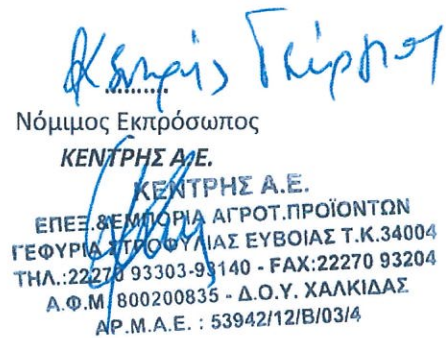 Κεντρής Γεώργιος
..........
Νόμιμος Εκπρόσωπος
ΚΕΝΤΡΗΣ Α.Ε.
ΚΕΝΤΡΗΣ Α.Ε.
ΕΠΕΞ.&ΕΜΠΟΡΙΑ ΑΓΡΟΤ.ΠΡΟΪΟΝΤΩΝ
ΓΕΦΥΡΙΑ ΣΤΡΟΦΥΛΙΑΣ ΕΥΒΟΙΑΣ Τ.Κ.34004
ΤΗΛ.:22270 93303-93140 - FAX:22270 93204
Α.Φ.Μ. 800200835 - Δ.Ο.Υ. ΧΑΛΚΙΔΑΣ
ΑΡ.Μ.Α.Ε. : 53942/12/Β/03/4